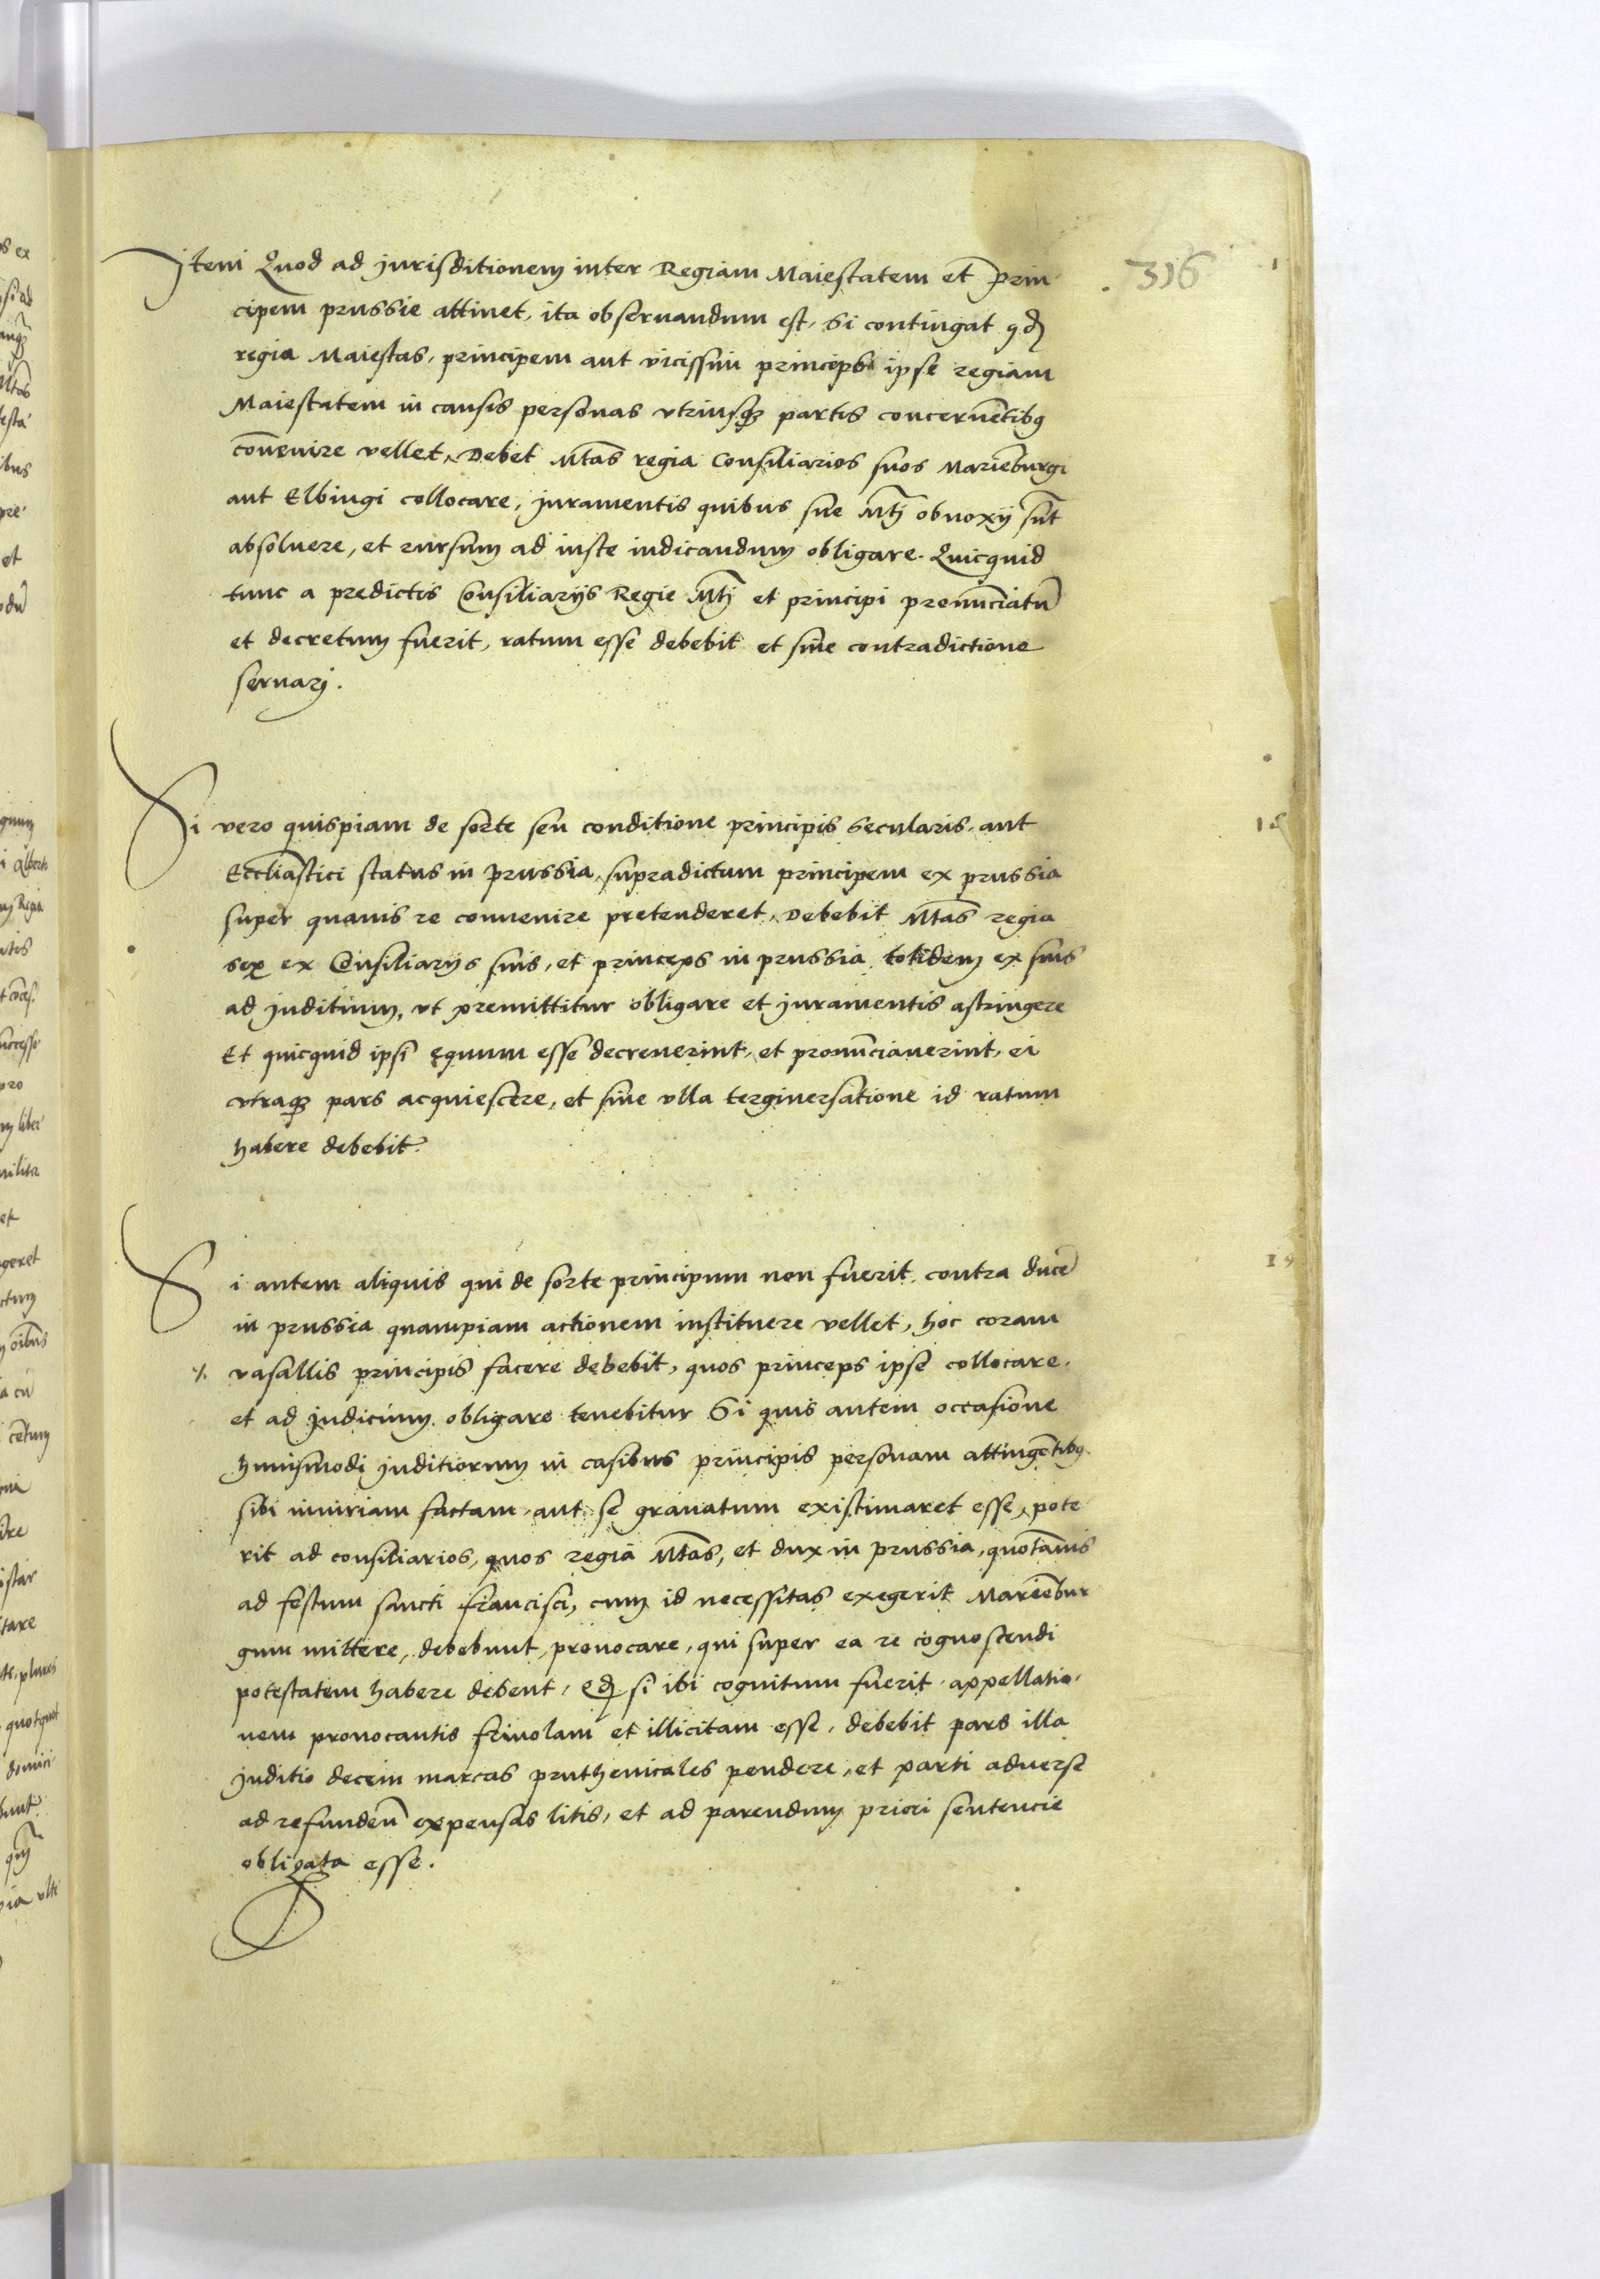 316
Item Quod ad jurisditionem inter Regiam Maiestatem et prin
cipem prussie attinet, ita obseruandum est, Si contingat qd
regia Maiestas, principem aut vicissim princeps ipse regiam
Maiestatem in causis personas vtriusqz partis concernẽtibꝰ
conuenire vellet, Debet Mtas regia Consiliarios suos Mariẽburgi
aut Elbingi collocare, juramentis quibus sue Mtj obnoxij sũt
absoluere, et rursum ad iuste iudicandum obligare. Quicquid
tunc a predictis Consiliarijs Regie Mtj et principi pronũciatũ
et decretum fuerit, ratum esse debebit et sine contradictione
seruarj.
Si vero quispiam de sorte seu conditione principis secularis, aut
Eccliastici status in prussia, supradictum principem ex prussia
super quauis re conuenire pretenderet, Debebit Mtas regia
sex ex Consiliarijs suis, et princeps in prussia totidem ex suis
ad juditium, vt premittitur obligare et juramentis astringere
Et quicquid ipsi ęquum esse decreuerint, et pronũciauerint, ei
vtraqz pars acquiescere, et sine vlla terginersatione id ratum
habere debebit.
Si autem aliquis qui de sorte principum non fuerit, contra ducẽ
in prussia quampiam actionem instituere vellet, hoc coram
vasallis principis facere debebit, quos princeps ipse collocare,
et ad judicium obligare tenebitur Si quis autem occasione
huiusmodi juditiorum in casibus principis personam attingẽtibꝰ
sibi iniuriam factam, aut se grauatum existimaret esse, pote
rit ad consiliarios, quos regia Mtas, et dux in prussia, quotãnis
ad festum sancti francisci, cum id necessitas exegerit Mariẽbur
gum mittere, debebunt, prouocare, qui super ea re cognoscendi
potestatem habere debent, qd si ibi cognitum fuerit, appellatio,
nem prouocantis friuolam et illicitam esse, debebit pars illa
juditio decem marcas pruthenicales pendere, et parti aduerse
ad refundeñ expensas litis, et ad parendum priori sentencie
obligata esse.